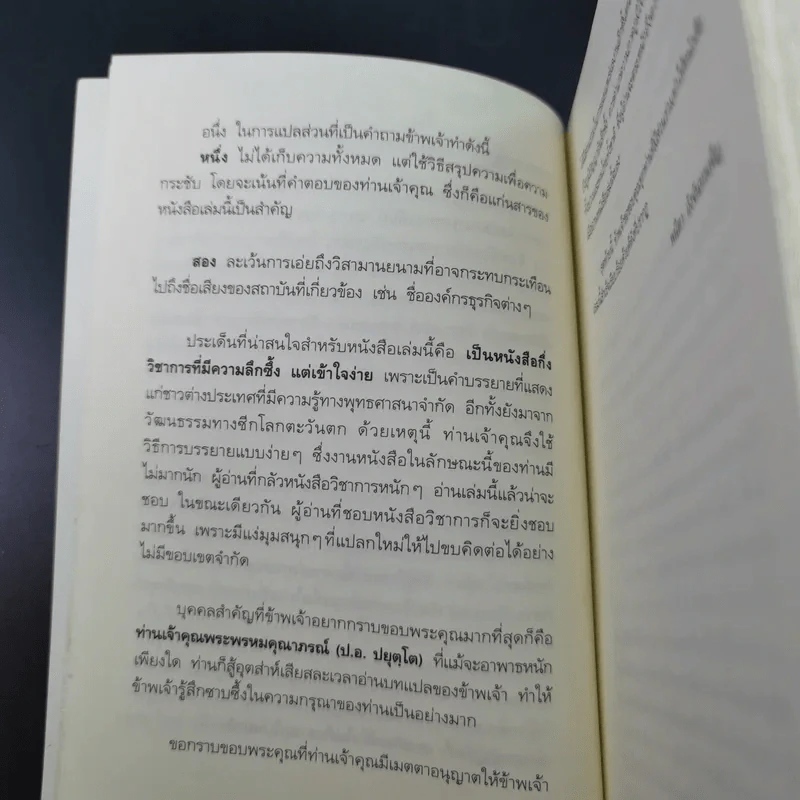 อนึ่ง ในการแปลส่วนที่เป็นคำถามข้าพเจ้าทำดังนี้
หนึ่ง ไม่ได้เก็บความทั้งหมด แต่ใช้วิธีสรุปความเพื่อความ
กระชับ โดยจะเน้นที่คำตอบของท่านเจ้าคุณ ซึ่งก็คือแก่นสารของ
หนังสือเล่มนี้เป็นสำคัญ
สอง ละเว้นการเอ่ยถึงวิสามานยนามที่อาจกระทบกระเทือน
ไปถึงชื่อเสียงของสถาบันที่เกี่ยวข้อง เช่น ชื่อองค์กรธุรกิจต่างๆ
ประเด็นที่น่าสนใจสำหรับหนังสือเล่มนี้คือ เป็นหนังสือกึ่ง
วิชาการที่มีความลึกซึ้ง แต่เข้าใจง่าย เพราะเป็นคำบรรยายที่แสดง
แก่ชาวต่างประเทศที่มีความรู้ทางพุทธศาสนาจำกัด อีกทั้งยังมาจาก
วัฒนธรรมทางซีกโลกตะวันตก ด้วยเหตุนี้ ท่านเจ้าคุณจึงใช้
วิธีการบรรยายแบบง่ายๆ ซึ่งงานหนังสือในลักษณะนี้ของท่านมี
ไม่มากนัก ผู้อ่านที่กลัวหนังสือวิชาการหนักๆ อ่านเล่มนี้แล้วน่าจะ
ชอบ ในขณะเดียวกัน ผู้อ่านที่ชอบหนังสือวิชาการก็จะยิ่งชอบ
มากขึ้น เพราะมีแง่มุมสนุกๆ ที่แปลกใหม่ให้ไปขบคิดต่อได้อย่าง
ไม่มีขอบเขตจำกัด
บุคคลสำคัญที่ข้าพเจ้าอยากกราบขอบพระคุณมากที่สุดก็คือ
ท่านเจ้าคุณพระพรหมคุณาภรณ์ (ป.อ. ปยุตฺโต) ที่แม้จะอาพาธหนัก
เพียงใด ท่านก็สู้อุตส่าห์เสียสละเวลาอ่านบทแปลของข้าพเจ้า ทำให้
ข้าพเจ้ารู้สึกซาบซึ้งในความกรุณาของท่านเป็นอย่างมาก
ขอกราบขอบพระคุณที่ท่านเจ้าคุณมีเมตตาอนุญาตให้ข้าพเจ้า